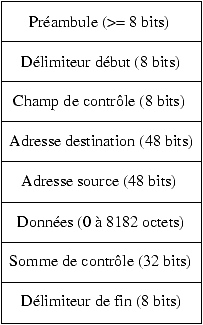 Préambule (>= 8 bits)
Délimiteur début (8 bits)
Champ de contrôle (8 bits)
Adresse destination (48 bits)
Adresse source (48 bits)
Données (0 à 8182 octets)
Somme de contrôle (32 bits)
Délimiteur de fin (8 bits)